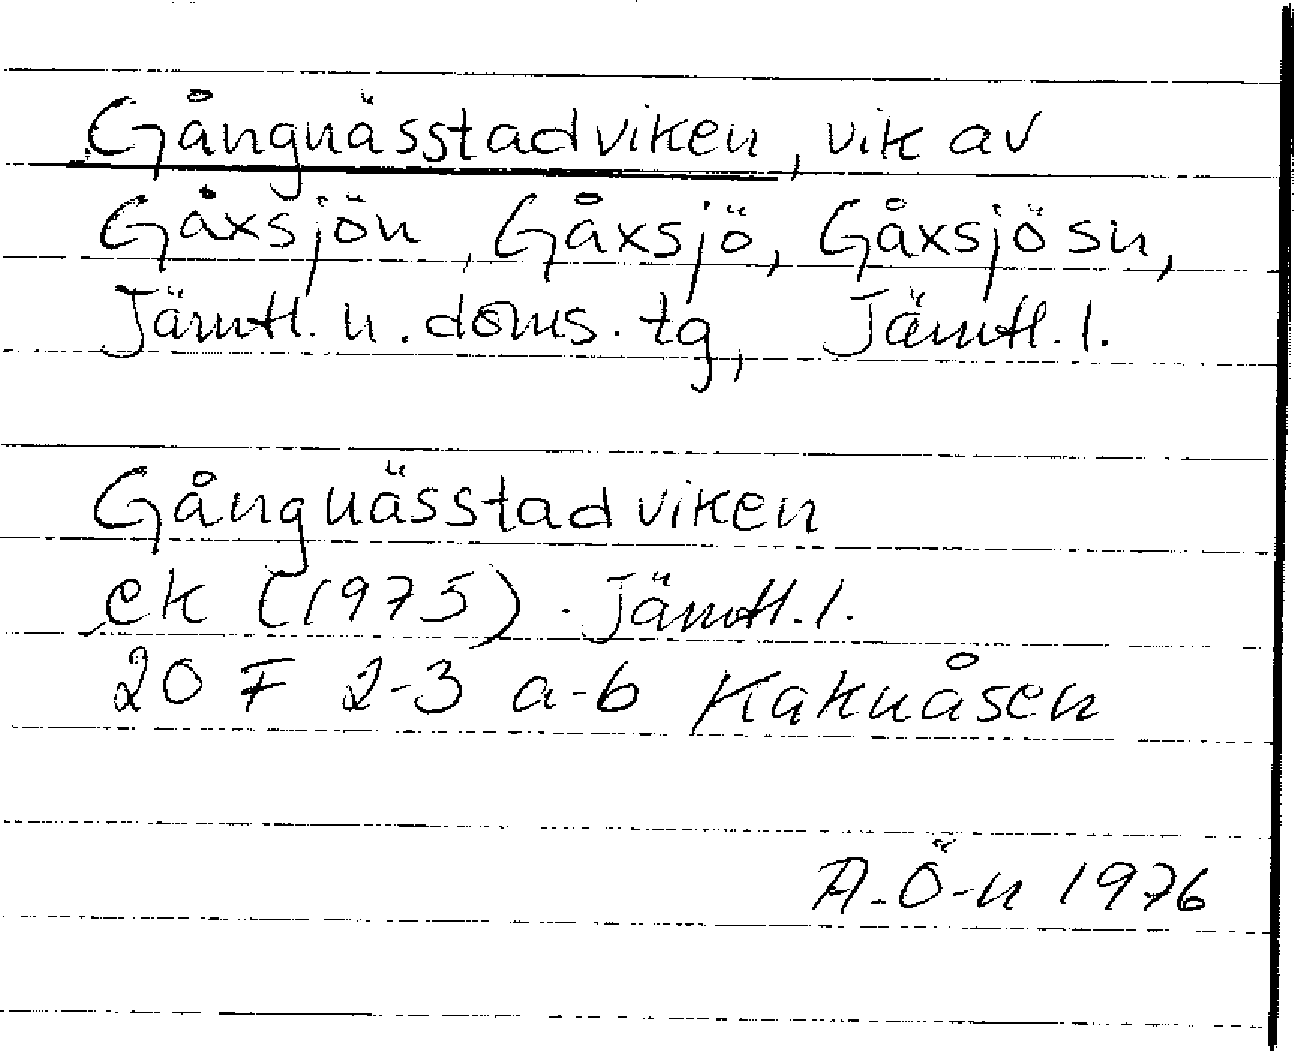 Gångnässtadviken, vik av
Gåxsjön, Gåxsjö, Gåxsjö sn,
Jämtl. n. doms. tg, Jämtl. l.
Gångnässtadviken
ek (1975). Jämtl. l.
20 F 2-3 a-b Kaknåsen
A.Ö-n 1976